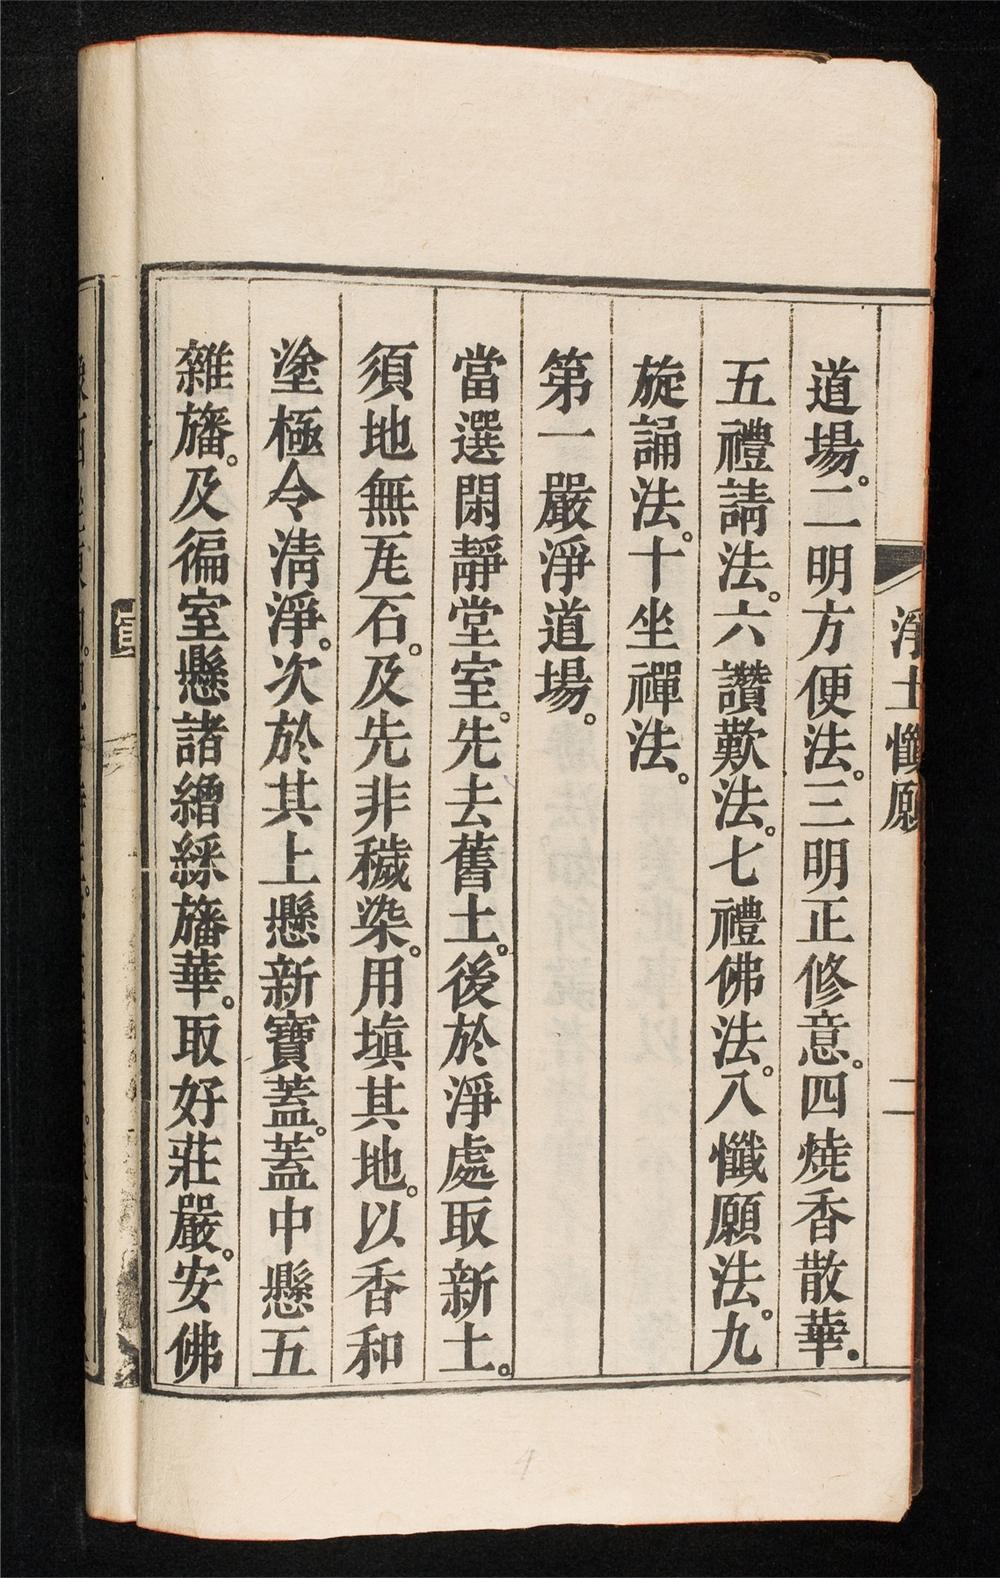 淨土懺願
二
道場。二明方便法。三明正修意。四燒香散華.
五禮請法。六讚歎法。七禮佛法。八懺願法。九
旋誦法。十坐禪法。
第一嚴淨道場。
當選閑靜堂室。先去舊土。後於淨處取新土。
須地無瓦石。及先非穢染。用塡其地。以香和
塗極令淸淨。次於其上懸新寶蓋。蓋中懸五
雜旛。及徧室懸諸繒綵旛華。取好莊嚴。安佛
4